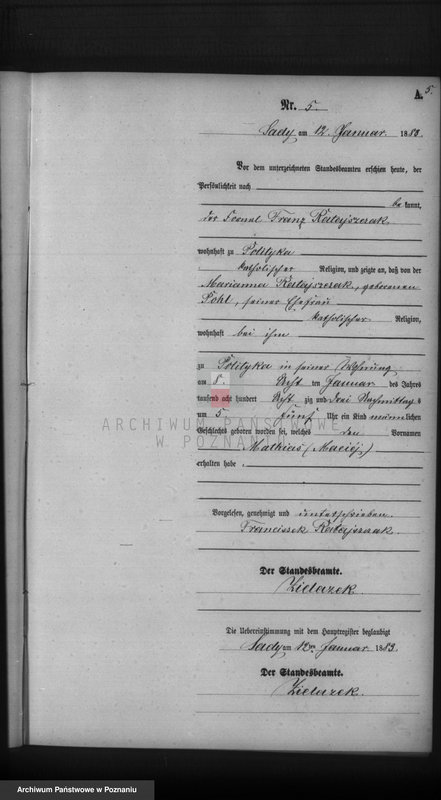 A.
5.
Nr. 5.
Sady am 12. Januar 1883.
Vor dem unterzeichneten Standesbeamten erschien heute, der
Persönlichkeit nach
be kannt,
der Fornal Franz Ratajszczak
wohnhaft zu Polityka
katholischer Religion, und zeigte an, daß von der
Marianna Ratajszczak, geborenen
Pohl, seiner Ehefrau
katholischer Religion,
wohnhaft bei ihm
zu Polityka in seiner Wohnung
am 8. Acht ten Januar des Jahres
tausend acht hundert Acht zig und drei Nachmittags
um 5. fünf Uhr ein Kind männlichen
Geschlechts geboren worden sei, welches den Vornamen
Mathias (Maciéj)
erhalten habe.
Vorgelesen, genehmigt und unterschrieben.
Franciszek Ratajszczak.
Der Standesbeamte.
Die Uebereinstimmung mit dem Hauptregister beglaubigt
Sady am 12ten Januar 1883.
Der Standesbeamte.
ARCHIWUM PAŃSTWOWE
W POZNANIU
Archiwum Państwowe w Poznaniu